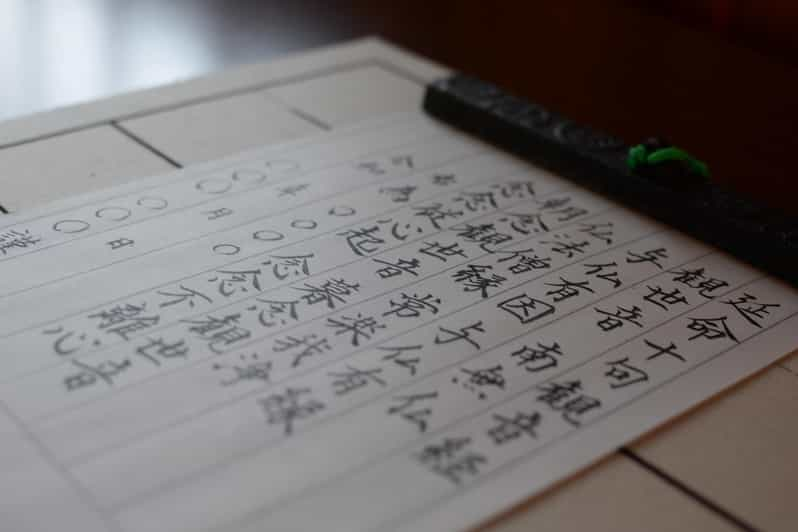 延命十句観音経
観世音南無仏
与仏有因与仏有縁
仏法僧縁常楽我浄
朝念観世音暮念観世音
念念従心起念念不離心
右為○○○○
令和年月日
○○○○○謹